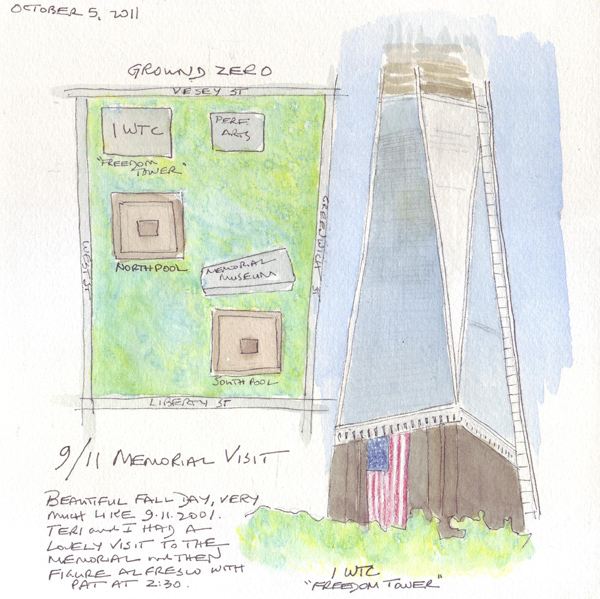 OCTOBER 5, 2011
GROUND ZERO
VESEY ST
1 WTC
"FREEDOM
TOWER"
PERF.
ARTS
WEST ST
GREENWICH ST
NORTH POOL
MEMORIAL
MUSEUM
SOUTH POOL
LIBERTY ST
9/11 MEMORIAL VISIT
BEAUTIFUL FALL DAY, VERY
MUCH LIKE 9.11.2001.
TERI and I HAD A
LOVELY VISIT TO THE
MEMORIAL and THEN
FIGURE AL FRESCO WITH
PAT AT 2:30.
1 WTC
"FREEDOM TOWER"